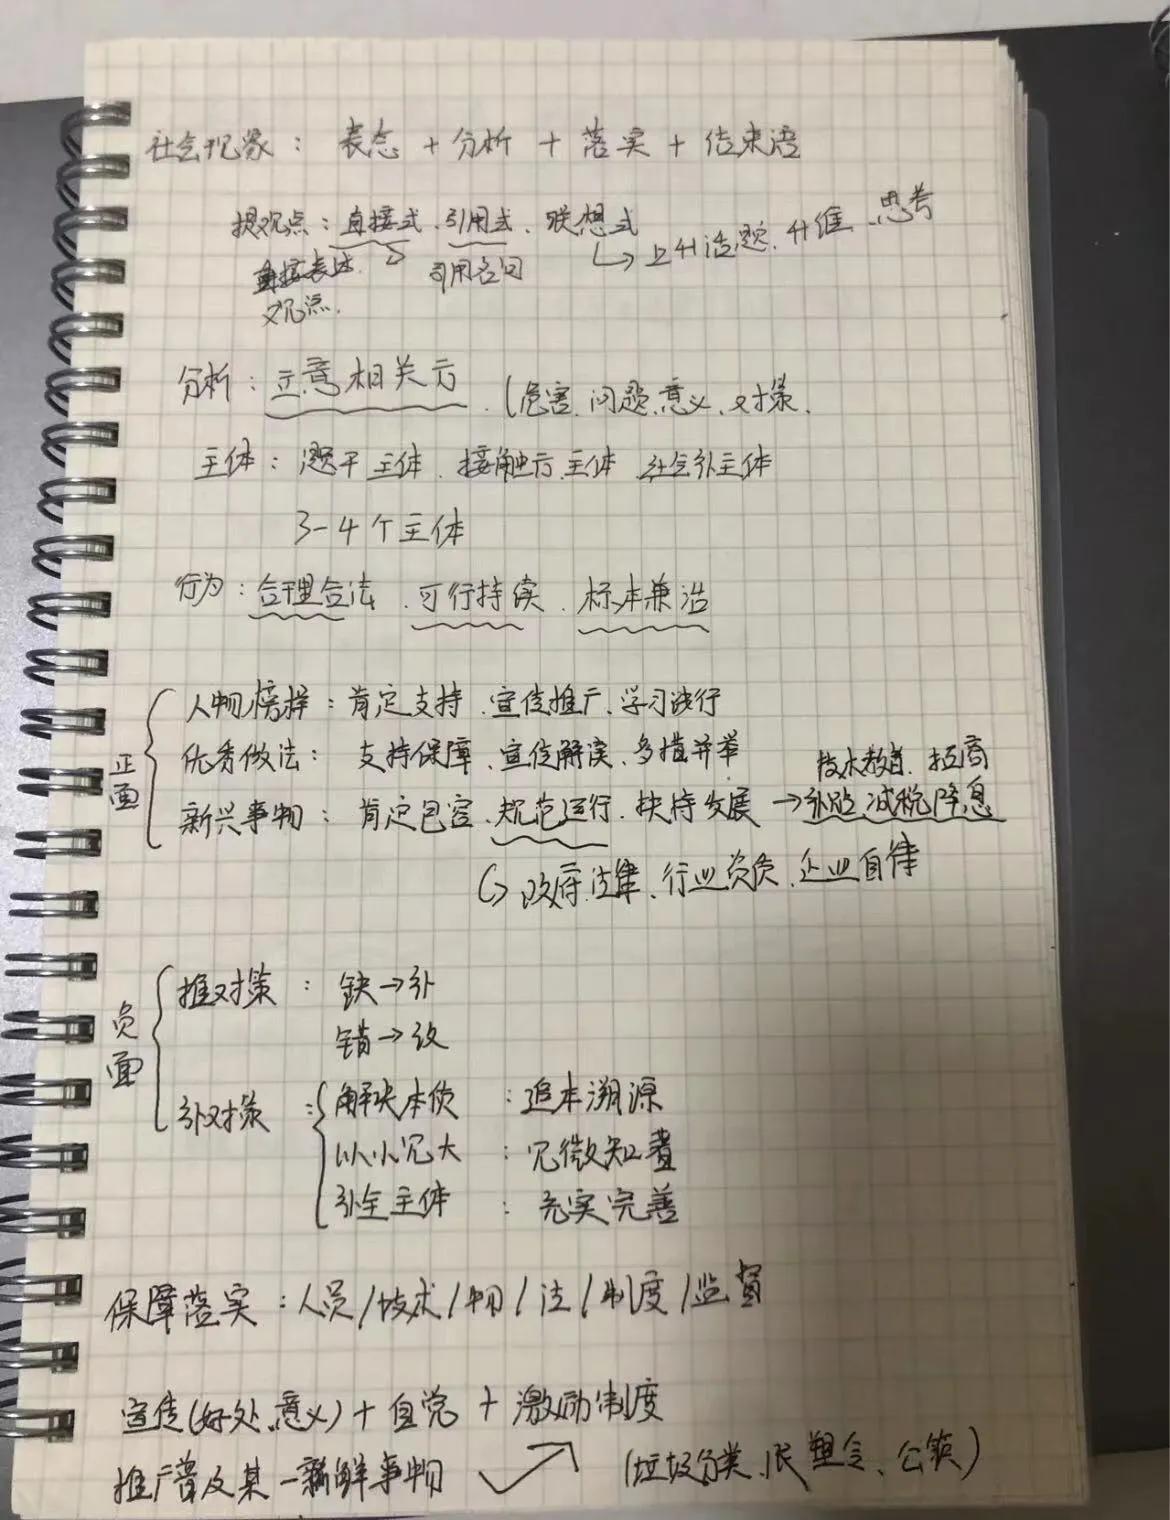 社会现象： 表态 + 分析 + 落实 + 结束语
提观点：直接式、引用式、联想式 → 上升话题、升维、思考
直接表达 引用名句
观点.
分析：注意相关方 (危害、问题、意义、对策、
主体：题干主体、接触方主体、社会补主体
3-4个主体
行为：合理合法、可行持续、标本兼治
正面
人物榜样：肯定支持、宣传推广、学习践行
优秀做法： 支持保障、宣传解读、多措并举
技术教育、招商
新兴事物： 肯定包容、规范运行、扶持发展 → 补贴、减税降息
→ 政府法律、行业负责、企业自律
负面
推对策： 缺→补
错→改
补对策：
解决本质 ：追本溯源
以小见大 ：见微知著
补全主体 ：充实完善
保障落实：人员/技术/物/法/制度/监督
宣传(好处、意义)+自觉+激励制度
推广普及某一新鲜事物 (垃圾分类、限塑令、公筷)